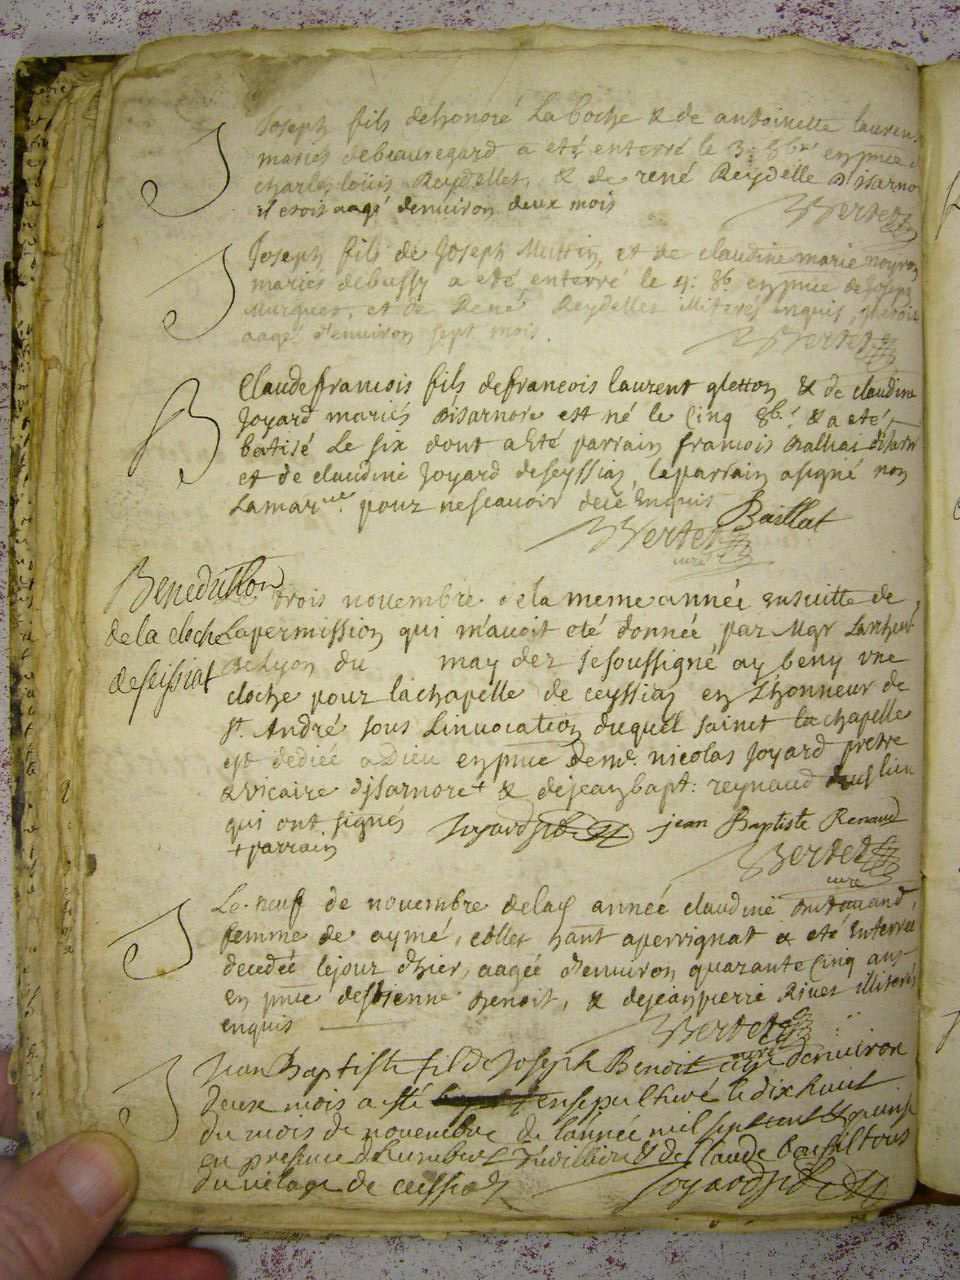 S
Joseph fils dehonoré La boche & de antoinette laurent
mariés debeauregard a eté enterré le 3: 8bre enpnce
charles loüis Reydellet, & de rené Reydelle Disarno
il etoit aagé denuiron deux mois
Vertet
S
Joseph fils de Joseph Muttin, et de claudine marie noyron
mariés debussy a eté enterré le 4: 8b enpnce de Joseph
Murguet, et de René Reydellet illiterés enquis, il etoit
aagé d'enuiron sept mois.
Vertet
B
Claudefrancois fils defrancois laurent gletton & de claudine
Joyard mariés Disarnore est né le Cinq 8b.e & a eté
batisé Le six dont a Eté parrain francois Balliat disarn
et de claudine Joyard deseyssia, le parrain asigné non
La marne pour nescauoir de ce Enquis
Baillat
Vertet
curé
Benediction
de la cloche
de seissiat
trois nouembre de la meme année ensuitte de
Lapermission qui m'auoit eté donnée par Mgr Larcheu
de Lyon du may der Je soussigné ay beny vne
cloche pour lachapelle de ceyssia en Lhonneur de
st. André sous Linuocation duquel sainct la chapelle
est dediée a Dieu enpnce de me. nicolas Joyard pretre
& vicaire disarnore + & dejean bapt: reynaud dud lieu
qui ont signés
+ parrain
Joyard jean Baptiste Renaud
Vertet
curé
S
Le neuf de nouembre delad année claudine
femme de aymé, collet hant aperrignat a eté Enterrée
decedée lejour d'hier, aagée d'enuiron quarante Cinq ans
en pnce destienne Benoit, & dejeanpierre Riuet illiterés
enquis
Vertet
curé
S
Jean Baptiste fil de Joseph Benoit agé denuiron
deux mois a eté ensepulturé le dix huict
du mois de nouembre de l'année mil sept cent & quinse
en presence de humbert & de Claude tous
du uilage de ceissiat
Joyard